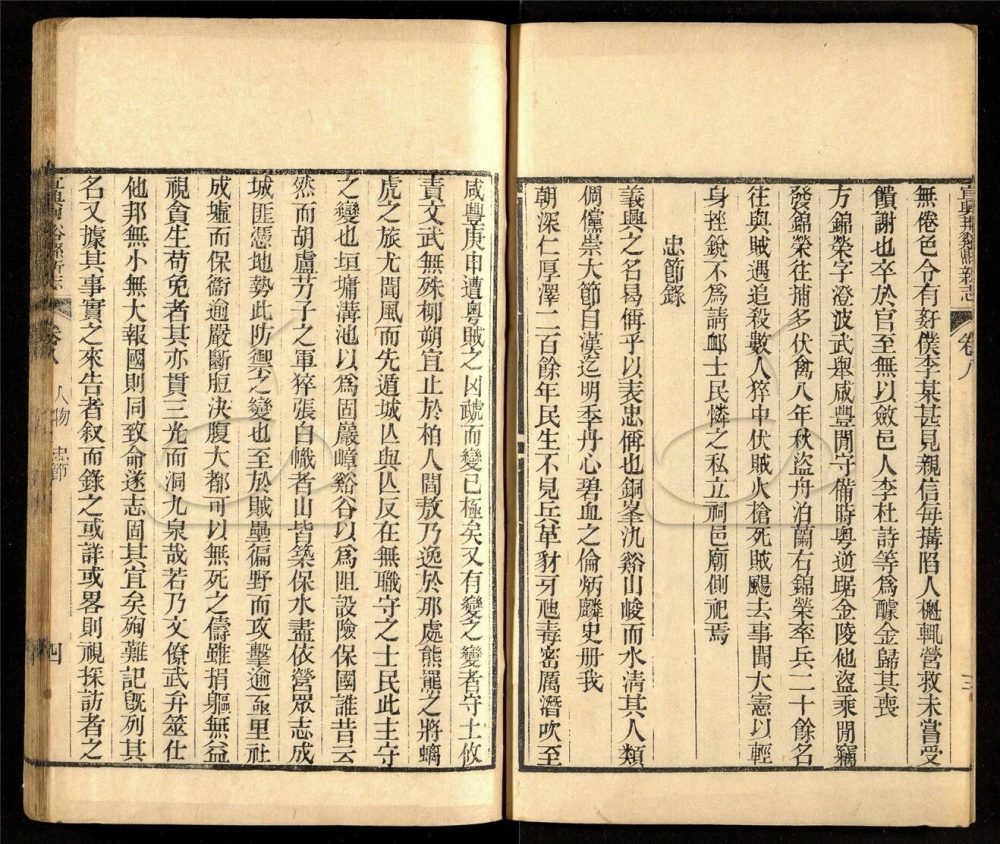 宜興荊谿縣新志 卷八 三
無倦色令有奸僕李某甚見親信每搆陷人樾輒營救未嘗受
饋謝也卒於官至無以斂邑人李杜詩等爲醵金歸其喪
方錦榮字澄波武舉咸豐閒守備時粵逆踞金陵他盜乘閒竊
發錦榮往捕多伏禽八年秋盜舟泊蘭右錦榮率兵二十餘名
往與賊遇追殺數人猝中伏賊火槍死賊颺去事聞大憲以輕
身挫銳不爲請卹士民憐之私立祠邑廟側祀焉
忠節錄
義興之名曷偁乎以表忠偁也銅峯氿谿山峻而水清其人類
倜儻崇大節自漢迄明季丹心碧血之倫炳麟史册我
朝深仁厚澤二百餘年民生不見兵革豺牙虺毒密厲潛吹至
咸豐庚申遭粵賊之凶虣而變已極矣又有變之變者守土攸
責文武無殊柳朔宜止於柏人閻敖乃逸於那處熊羆之將螭
虎之旅尤聞風而先遁城亾與亾反在無職守之士民此主守
之變也垣墉溝池以爲固嚴嶂谿谷以爲阻設險保國誰昔云
然而胡盧芀子之軍猝張白幟者山皆築保水盡依營眾志成
城匪憑地勢此防禦之變也至於賊壘徧野而攻擊逾亟里社
成墟而保衞逾嚴斷脰決腹大都可以無死之儔雖捐軀無益
視貪生苟免者其亦貫三光而洞九泉哉若乃文僚武弁筮仕
他邦無小無大報國則同致命遂志固其宜矣殉難記旣列其
名又據其事實之來告者叙而錄之或詳或畧則視採訪者之
卷八 人物 忠節 四